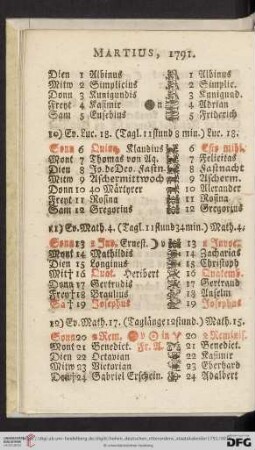 MARTIUS, 1791.
Dien 1 Albinus 1 Albinus
Mitw 2 Simplicius 2 Simplic.
Donn 3 Kunigundis 3 Kunigund.
Freyt 4 Kasimir 4 Adrian
Sam 5 Eusebius 5 Friderich
10) Ev. Luc. 18. (Tagl. 11 stund 8 min.) Luc. 18.
Sonn 6 Quinq. Klaudius 6 Esto mihi
Mont 7 Thomas von Aq. 7 Felicitas
Dien 8 Jo. de Deo. Fastn. 8 Fastnacht
Mitw 9 Aschermittwoch 9 Ascherm.
Donn 10 40 Märtyrer 10 Alexander
Freyt 11 Rosina 11 Rosina
Sam 12 Gregorius 12 Gregorius
11) Ev. Math. 4. (Tagl. 11 stund 34 min.) Math. 4.
Sonn 13 2 Inv. Ernest. 13 2 Invoc.
Mont 14 Mathildis 14 Zacharias
Dien 15 Longinus 15 Christoph
Mitt 16 Quot. Heribert 16 Quatemb.
Donn 17 Gertrudis 17 Gertraud
Freyt 18 Braulius 18 Anselm
Sa 19 Josephus 19 Josephus
12) Ev. Math. 17. (Taglänge 12 stund.) Math. 15.
Sonn 20 2 Rem. in 20 2 Reminis.
Mont 21 Benedict. Fr. A. 21 Benedict.
Dien 22 Octavian 22 Kasimir
Mitw 23 Victorian 23 Eberhard
Donn 24 Gabriel Erschein. 24 Adalbert
DFG